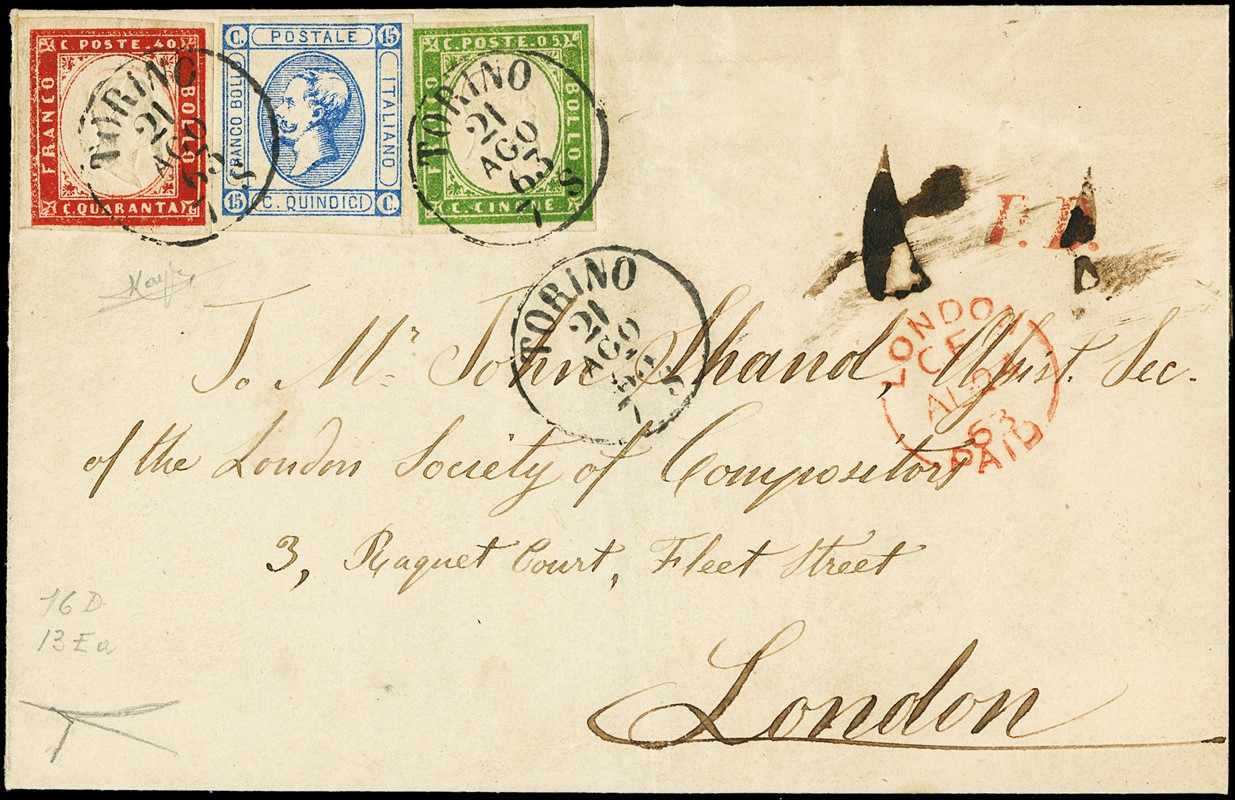 C. POSTE. 40
FRANCO
BOLLO
C. QUARANTA
C. POSTALE 15
FRANCO BOLLO
ITALIANO
15 C. QUINDICI C.
C. POSTE. 05
BOLLO
C. CINQUE
TORINO
21
AGO
63
7 S
TORINO
21
AGO
63
7 S
P.D.
TORINO
21
AGO
63
7 S
LONDON
CE
AU 24
63
PAID
To Mr John Shand, Sec.
of the London Society of Compositors
3, Raquet Court, Fleet Street
London
16 D
13 Ea